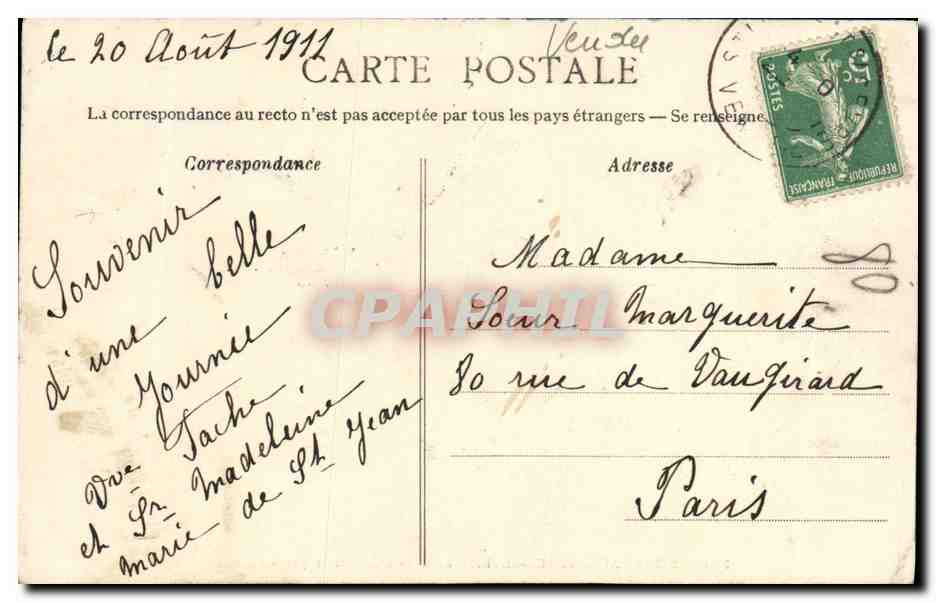 le 20 Août 1911
Vendée
CARTE POSTALE
La correspondance au recto n'est pas acceptée par tous les pays étrangers — Se renseigne
Correspondance
Souvenir
d'une belle
Journée
Vve Tache
et Sr Madeleine
marie de St Jean
Adresse
Madame
Soeur Marguerite
80 rue de Vaugirard
Paris
5c
POSTES
REPUBLIQUE
FRANÇAISE
80
CPAPHIL